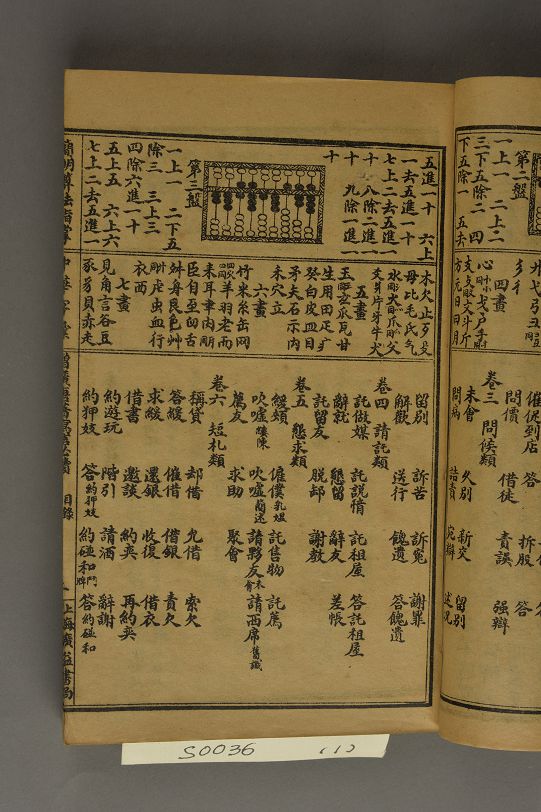 第二盤
一上一 二上二
三下五除二 四
下五除一 五去
四畫
方无日曰月
催促到店 答 拆股 答
問價 借徒 責誤 強辯
卷三 問候類
未會 久別 新交 留別
問病 詰責 寃辯 述况
五進一十 六上
一去五進一十
七上二去五進一
十 八除二進一
十 九除一進一
十
第三盤
一上一 二下五
除三 三上三
四除六進一十
五上五 六上六
七上二去五進一
木欠止歹殳
毋比毛氏气
水火爪父
爻爿片牙牛犬
五畫
玉玄瓜瓦甘
生用田疋疒
癶白皮皿目
矛矢石示禸
禾穴立
六畫
竹米糸缶网
羊羽老而
耒耳聿肉朋
臣自至臼舌
舛舟艮色艸
虍虫血行
衣西
七畫
見角言谷豆
豕豸貝赤走
留別 訴苦 訴寃 謝罪
解歡 送行 餽遺 答餽遺
卷四 請託類
託做媒 託說情 託租屋 答託租屋
辭就 懇留 辭友 差帳
託留友 脫卸 謝教
卷五 懇求類
緩頰 僱僕乳媼 託售物 託薦
吹嘘縷陳 吹嘘簡述 請夥友木肯 請西席舊識
薦友 求助 聚會
卷六 短札類
稱貸 却借 允借 索欠
答緩 催借 借銀 責欠
求緩 還銀 收復 借衣
借書 邀談 約奕 再約奕
約遊玩 階引 請酒 辭謝
約狎妓 答約狎妓 約碰和鬥牌 答約碰和
目錄
一
上海廣益書局
S0036 (1)